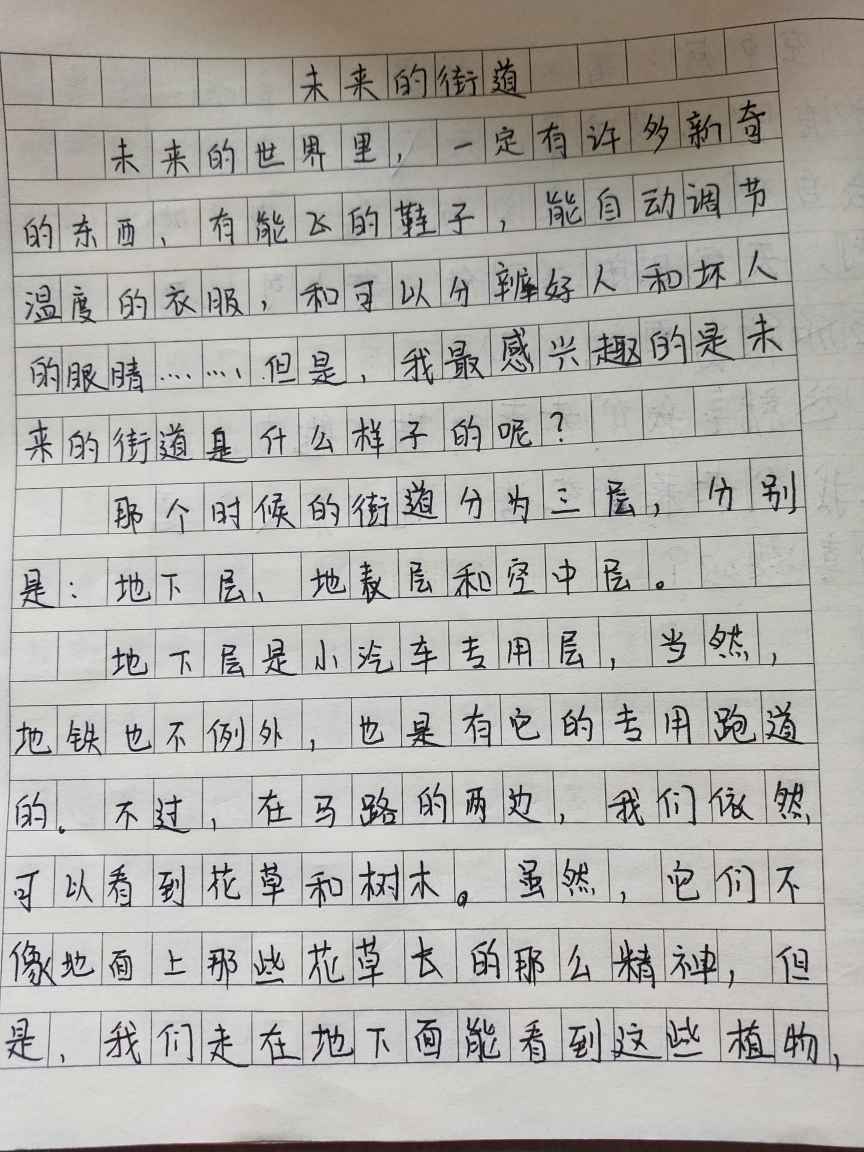 未来的街道
未来的世界里，一定有许多新奇
的东西、有能飞的鞋子，能自动调节
温度的衣服，和可以分辨好人和坏人
的眼睛……但是，我最感兴趣的是未
来的街道是什么样子的呢？
那个时候的街道分为三层，分别
是：地下层、地表层和空中层。
地下层是小汽车专用层，当然，
地铁也不例外，也是有它的专用跑道
的。不过，在马路的两边，我们依然
可以看到花草和树木。虽然，它们不
像地面上那些花草长的那么精神，但
是，我们走在地下面能看到这些植物，